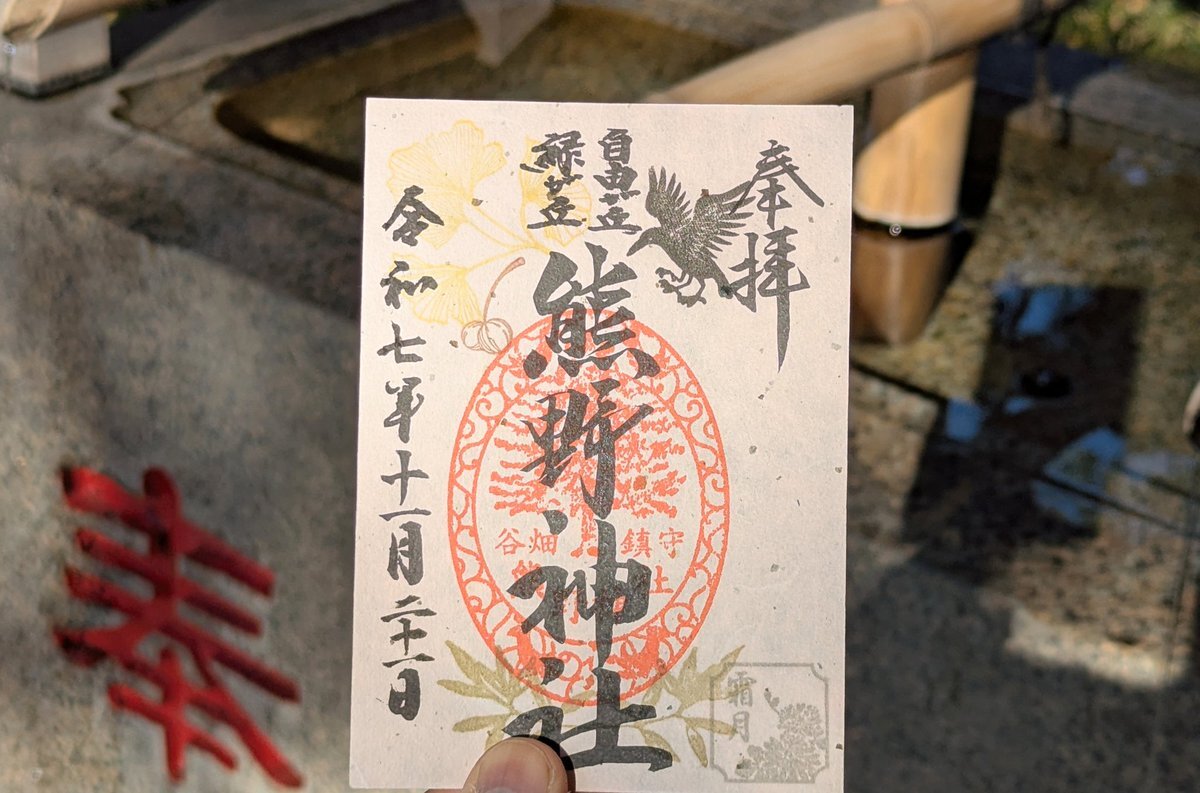 奉拝
自由が丘
緑が丘
熊野神社
令和七年十一月二十一日
谷畑 鎮守
上
霜月
奉